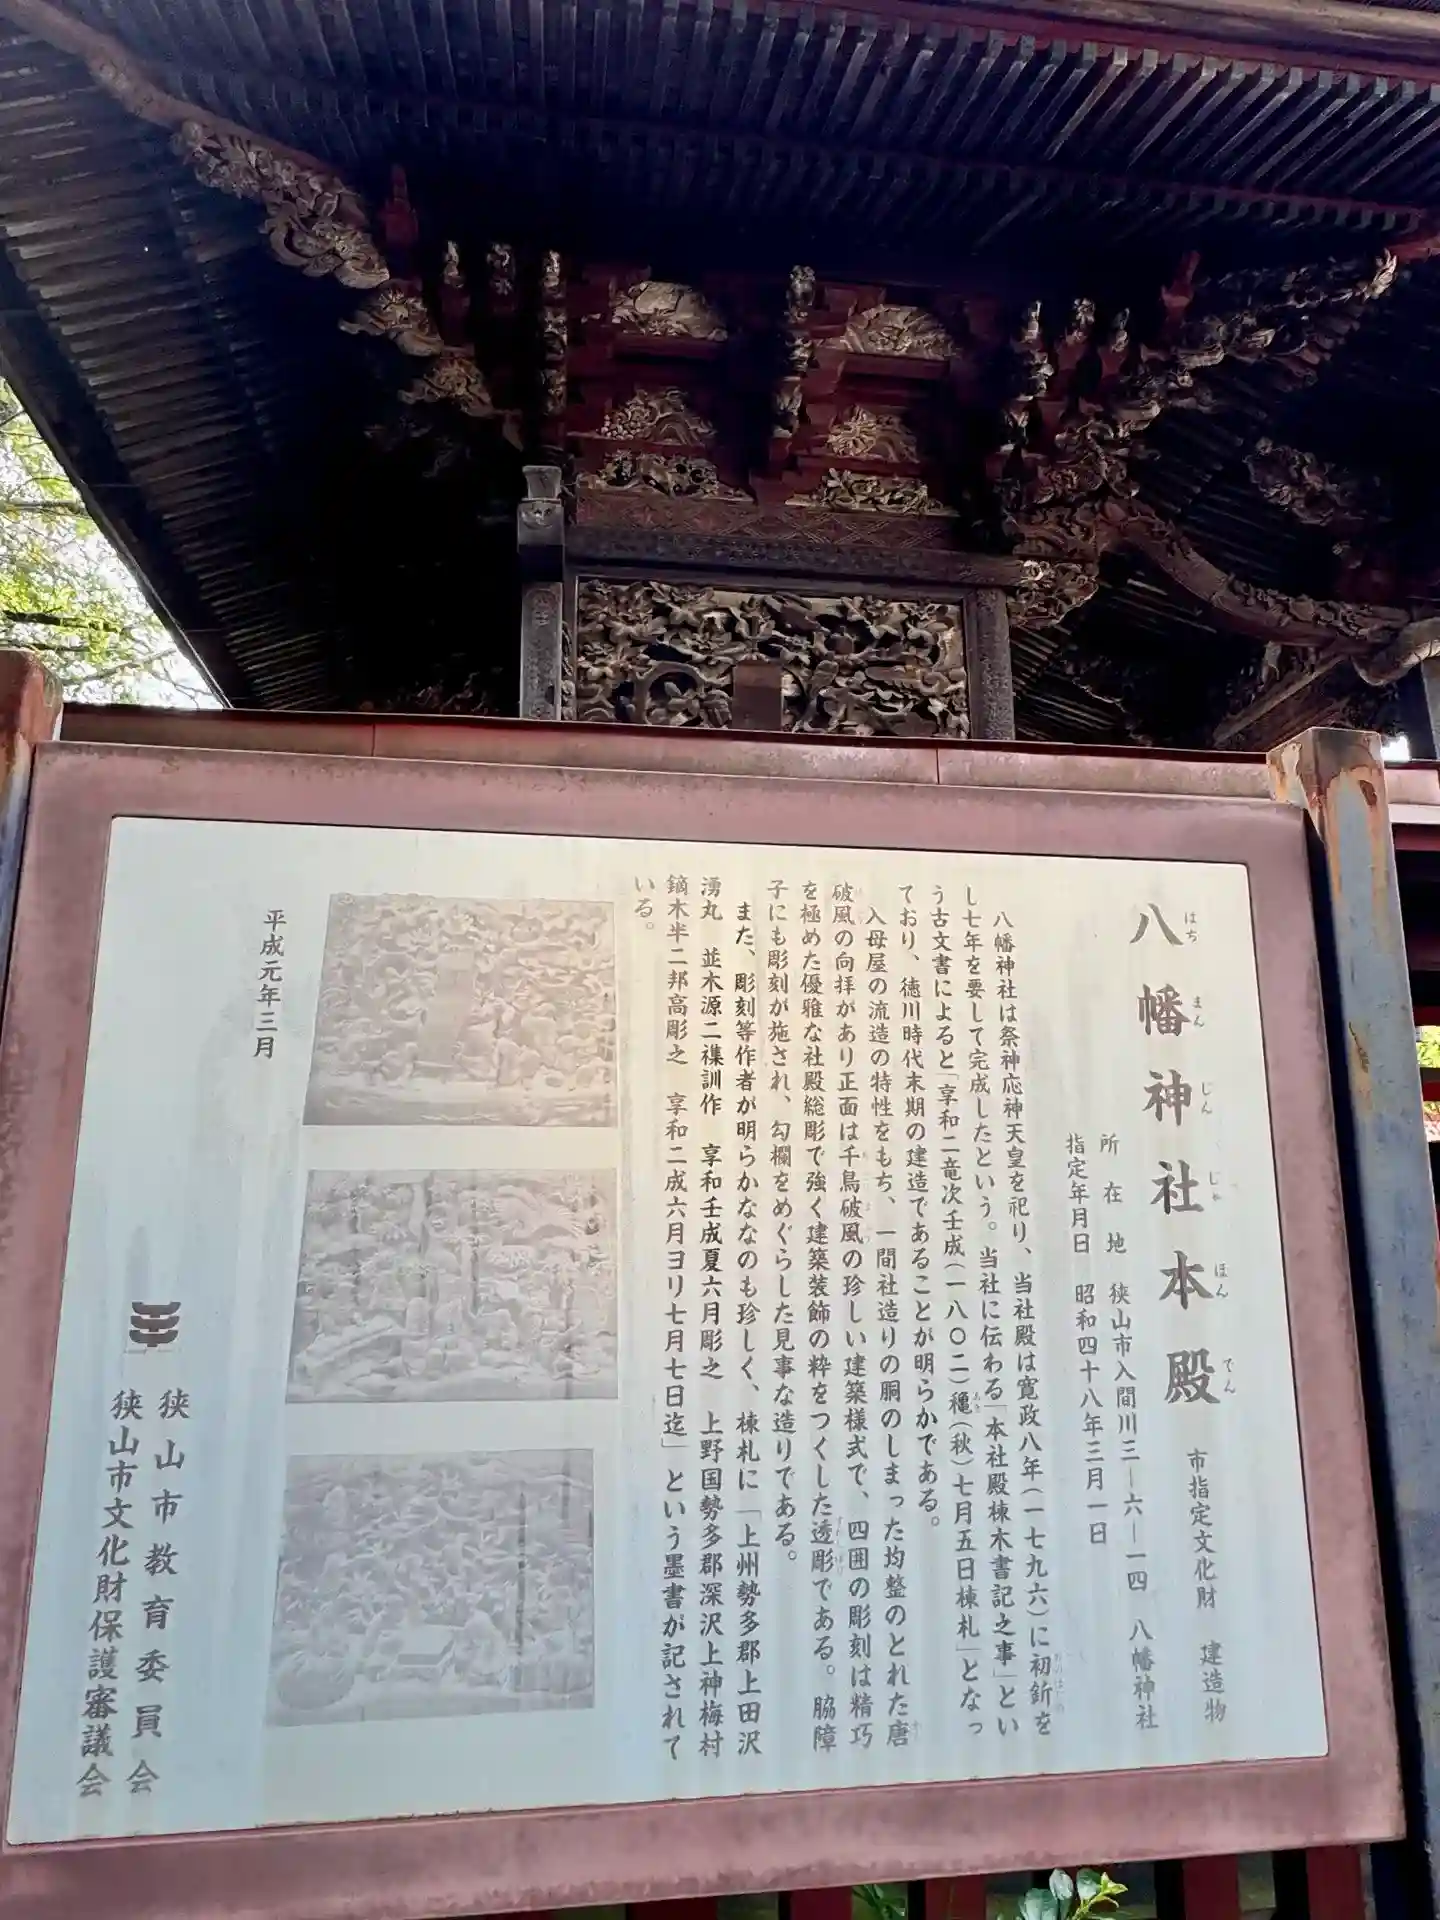 八幡神社本殿 市指定文化財 建造物
はち まん じん じゃ ほん でん
所在地 狭山市入間川三―六―一四 八幡神社
指定年月日 昭和四十八年三月一日
八幡神社は祭神応神天皇を祀り、当社殿は寛政八年(一七九六)に初釿を
し七年を要して完成したという。当社に伝わる「本社殿棟木書記之事」とい
う古文書によると「享和二竜次壬戌(一八〇二)龝(秋)七月五日棟札」となっ
ており、徳川時代末期の建造であることが明らかである。
入母屋の流造の特性をもち、一間社造りの胴のしまった均整のとれた唐
破風の向拝があり正面は千鳥破風の珍しい建築様式で、四囲の彫刻は精巧
を極めた優雅な社殿総彫で強く建築装飾の粋をつくした透彫である。脇障
子にも彫刻が施され、勾欄をめぐらした見事な造りである。
また、彫刻等作者が明らかななのも珍しく、棟札に「上州勢多郡上田沢
湧丸 並木源二 訓作 享和壬戌夏六月彫之 上野国勢多郡深沢上神梅村
鏑木半二邦高彫之 享和二戌六月ヨリ七月七日迄」という墨書が記されて
いる。
平成元年三月
狭山市教育委員会
狭山市文化財保護審議会